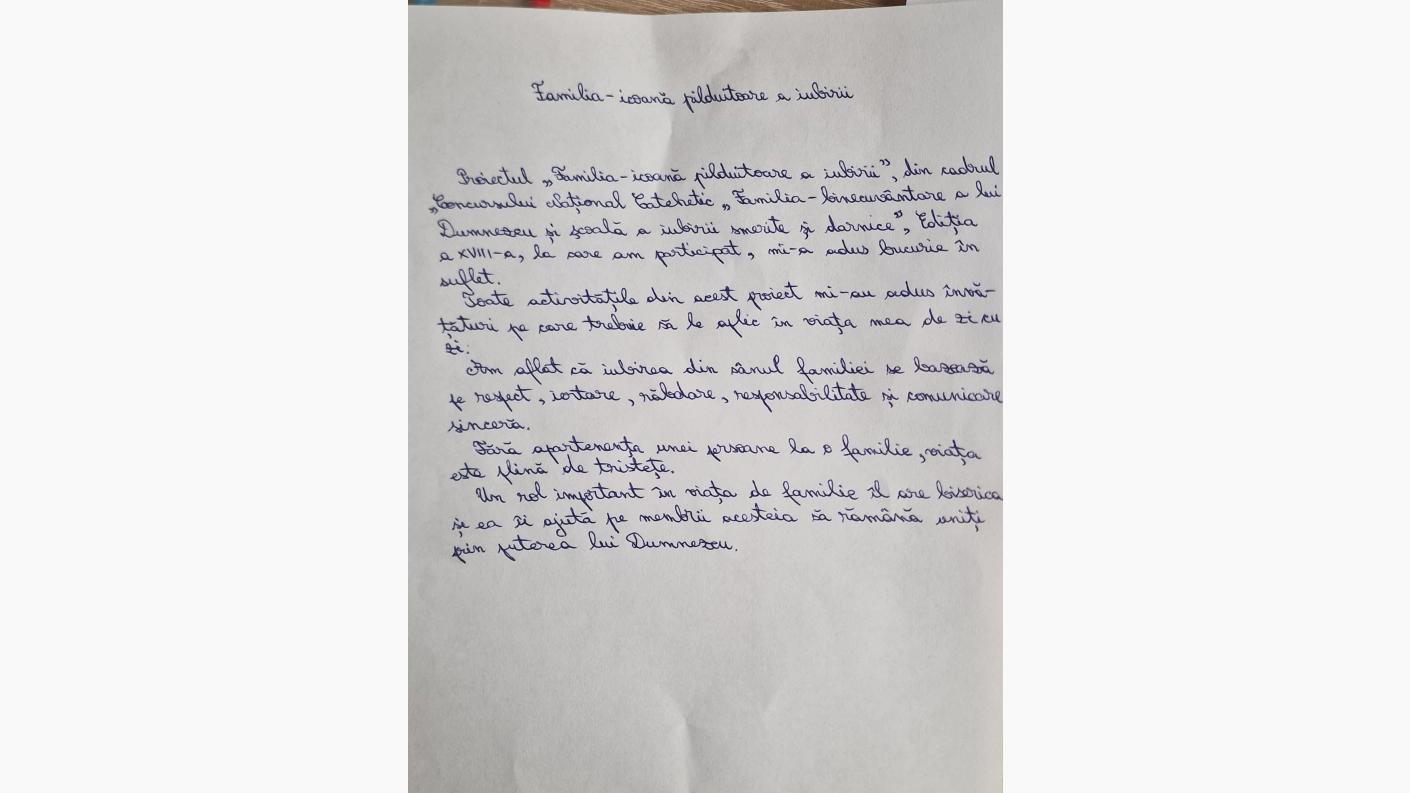 Familia-icoană pilduitoare a iubirii
Proiectul „Familia-icoană pilduitoare a iubirii”, din cadrul
„Concursului Național Catehetic „Familia-binecuvântare a lui
Dumnezeu și școală a iubirii smerite și darnice”, Ediția
a XVIII-a, la care am participat, mi-a adus bucurie în
suflet.
Toate activitățile din acest proiect mi-au adus învă-
țături pe care trebuie să le aplic în viața mea de zi cu
zi.
Am aflat că iubirea din sânul familiei se bazează
pe respect, iertare, răbdare, responsabilitate și comunicare
sinceră.
Fără apartenența unei persoane la o familie, viața
este plină de tristețe.
Un rol important în viața de familie îl are biserica
și ea îi ajută pe membrii acesteia să rămână uniți
prin puterea lui Dumnezeu.